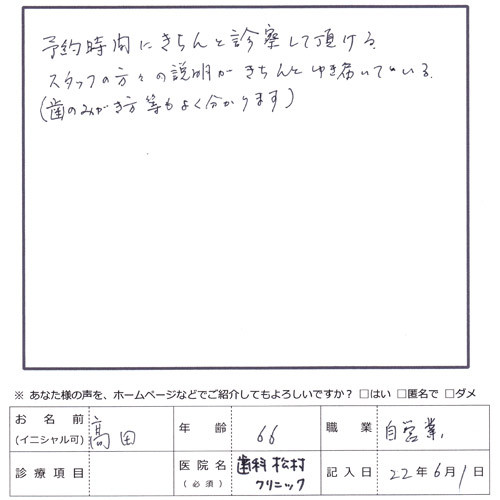 予約時間にきちんと診察して頂ける。
スタッフの方々の説明がきちんとゆき届いている。
(歯のみがき方等もよく分かります)
※ あなた様の声を、ホームページなどでご紹介してもよろしいですか? □はい □匿名で □ダメ
お名前 (イニシャル可) 髙田 年齢 66 職業 自営業
診療項目 医院名 (必須) 歯科松村クリニック 記入日 22年6月1日